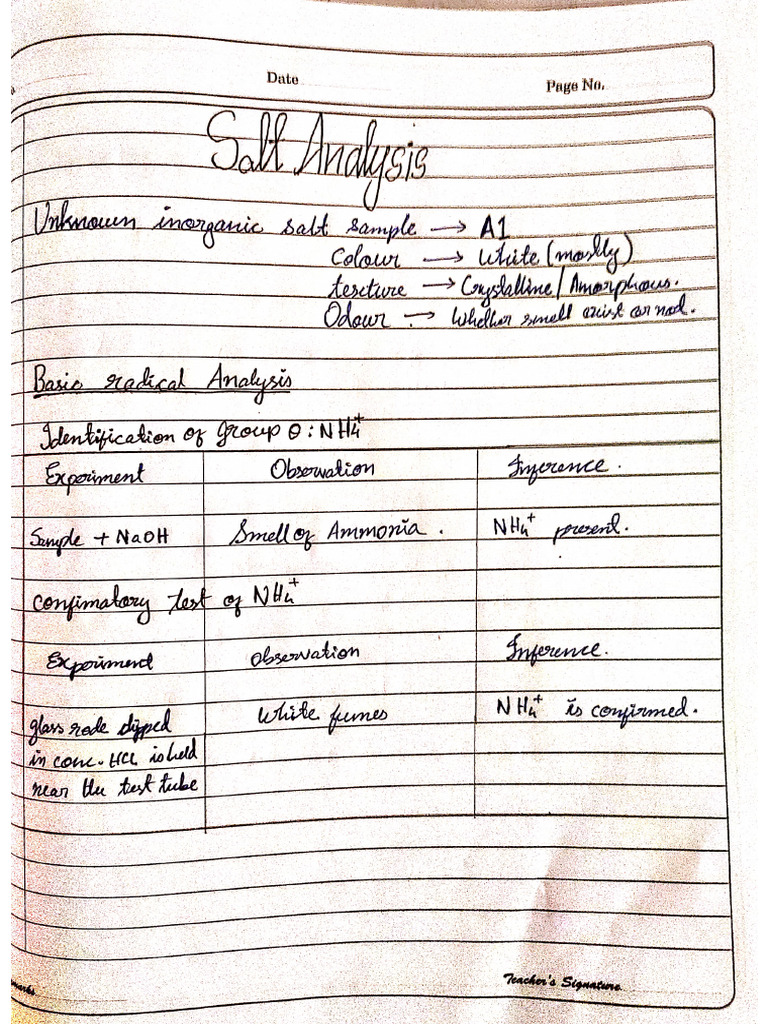 Date Page No.
Salt Analysis
Unknown inorganic salt sample → A1
Colour → White (mostly)
texture → Crystalline / Amorphous.
Odour → Whether smell exist or not.
Basic radical Analysis
Identification of Group 0 : NH4+
Experiment Observation Inference.
Sample + NaOH Smell of Ammonia. NH4+ present.
confimatory test of NH4+
Experiment Observation Inference.
glass rode dipped White fumes NH4+ is confirmed.
in conc. HCl is held
near the test tube
Teacher's Signature